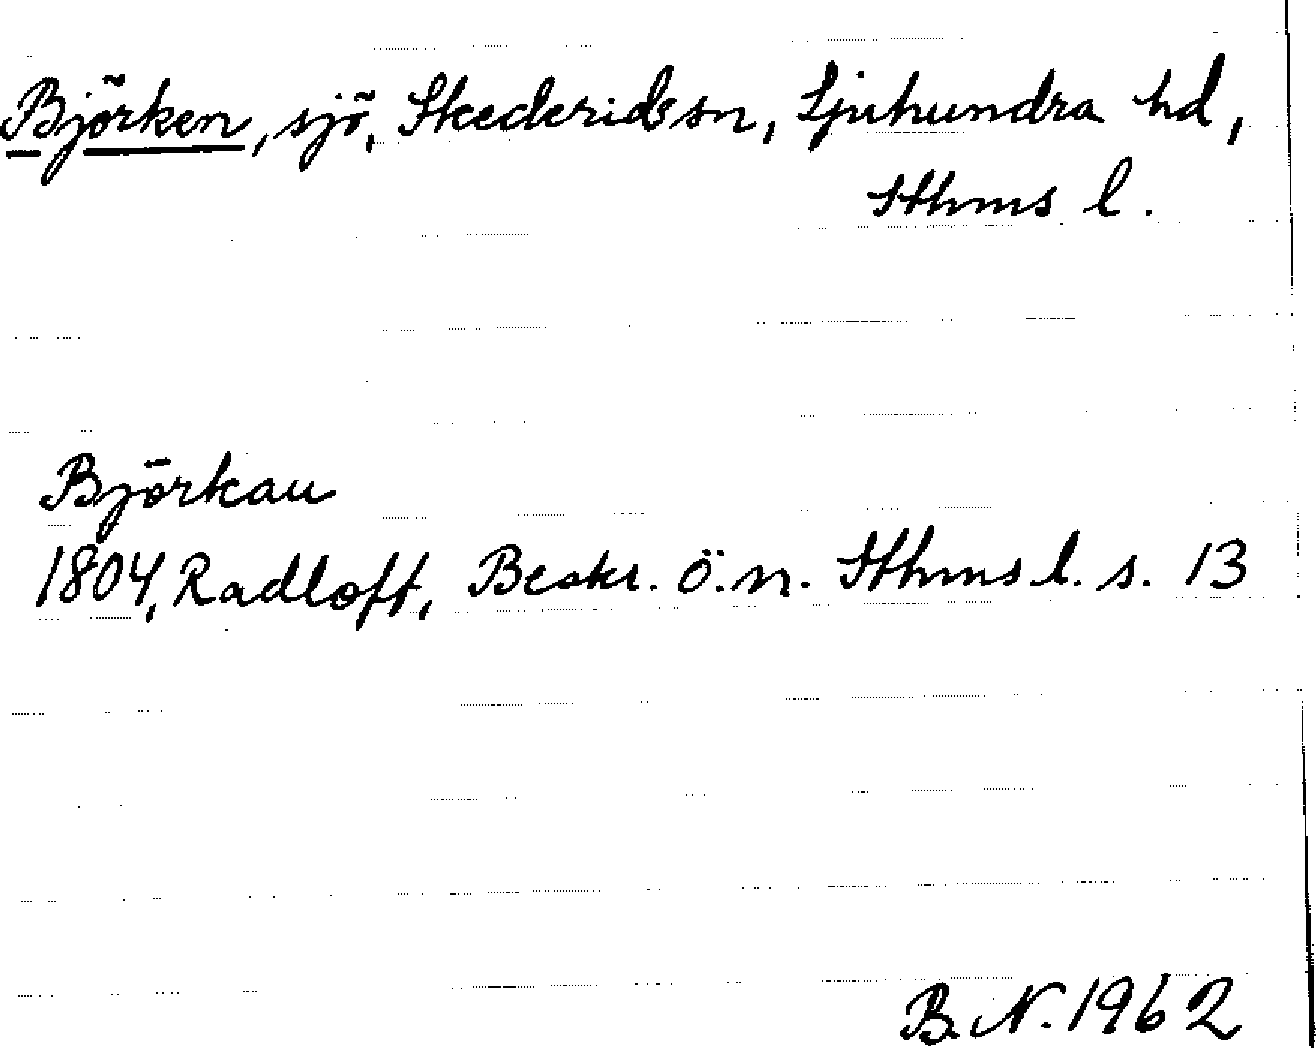 Björken, sjö, Skederids sn, Sjuhundra hd,
Sthms l.
Björkau
1804, Radloff, Beskr. ö. n. Sthms l. s. 13
B.N. 1962